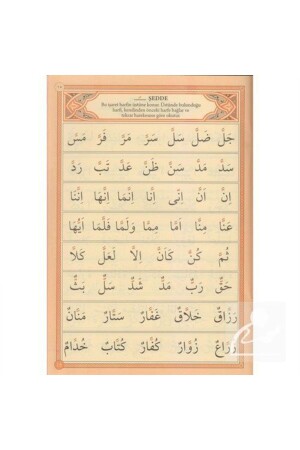 ŞEDDE
Bu işaret harfin üstüne konur. Üstünde bulunduğu
harfi, kendinden önceki harfe bağlar ve
جَلَّ ضَلَّ سَلَّ سَرَّ مَرَّ فَرَّ مَسَّ
سَدَّ مَدَّ سَنَّ ظَنَّ عَدَّ تَبَّ رَدَّ
اِنَّ اَنَّ اِنّٖى اَنَّا اِنَّمَا اِنَّهَا اِنَّنَا
عَنَّا مِنَّا اَمَّا مِمَّا وَلَمَّا فَلَمَّا اَيُّهَا
ثُمَّ كُنَّ كَاَنَّ اِلَّا لَعَلَّ كَلَّا
حَقٌّ رَبٌّ مَدٌّ شَدٌّ سَلٌّ بَثٌّ
رَزَّاقٌ خَلَّاقٌ غَفَّارٌ سَتَّارٌ مَنَّانٌ
زَرَّاعٌ زُوَّارٌ كُفَّارٌ كُتَّابٌ خُدَّامٌ